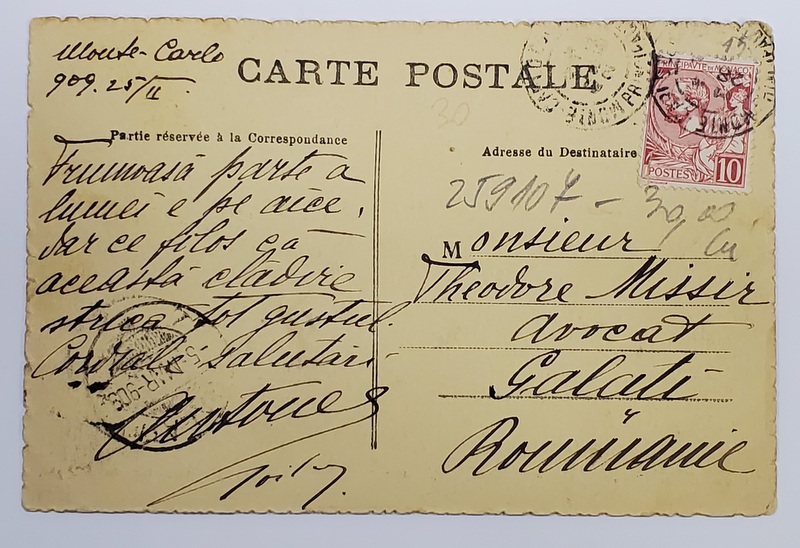 Monte-Carlo
909. 25/II
CARTE POSTALE
Partie réservée à la Correspondance
Adresse du Destinataire
PRINCIPAUTÉ DE MONACO
POSTES 10
Frumoasă parte a
lumei e pe aice,
dar ce folos că
această cladire
strica tot gustul.
Cordiale salutari
259107 – 30,00
Monsieur
Théodore Missir
Avocat
Galati
Roumanie
30